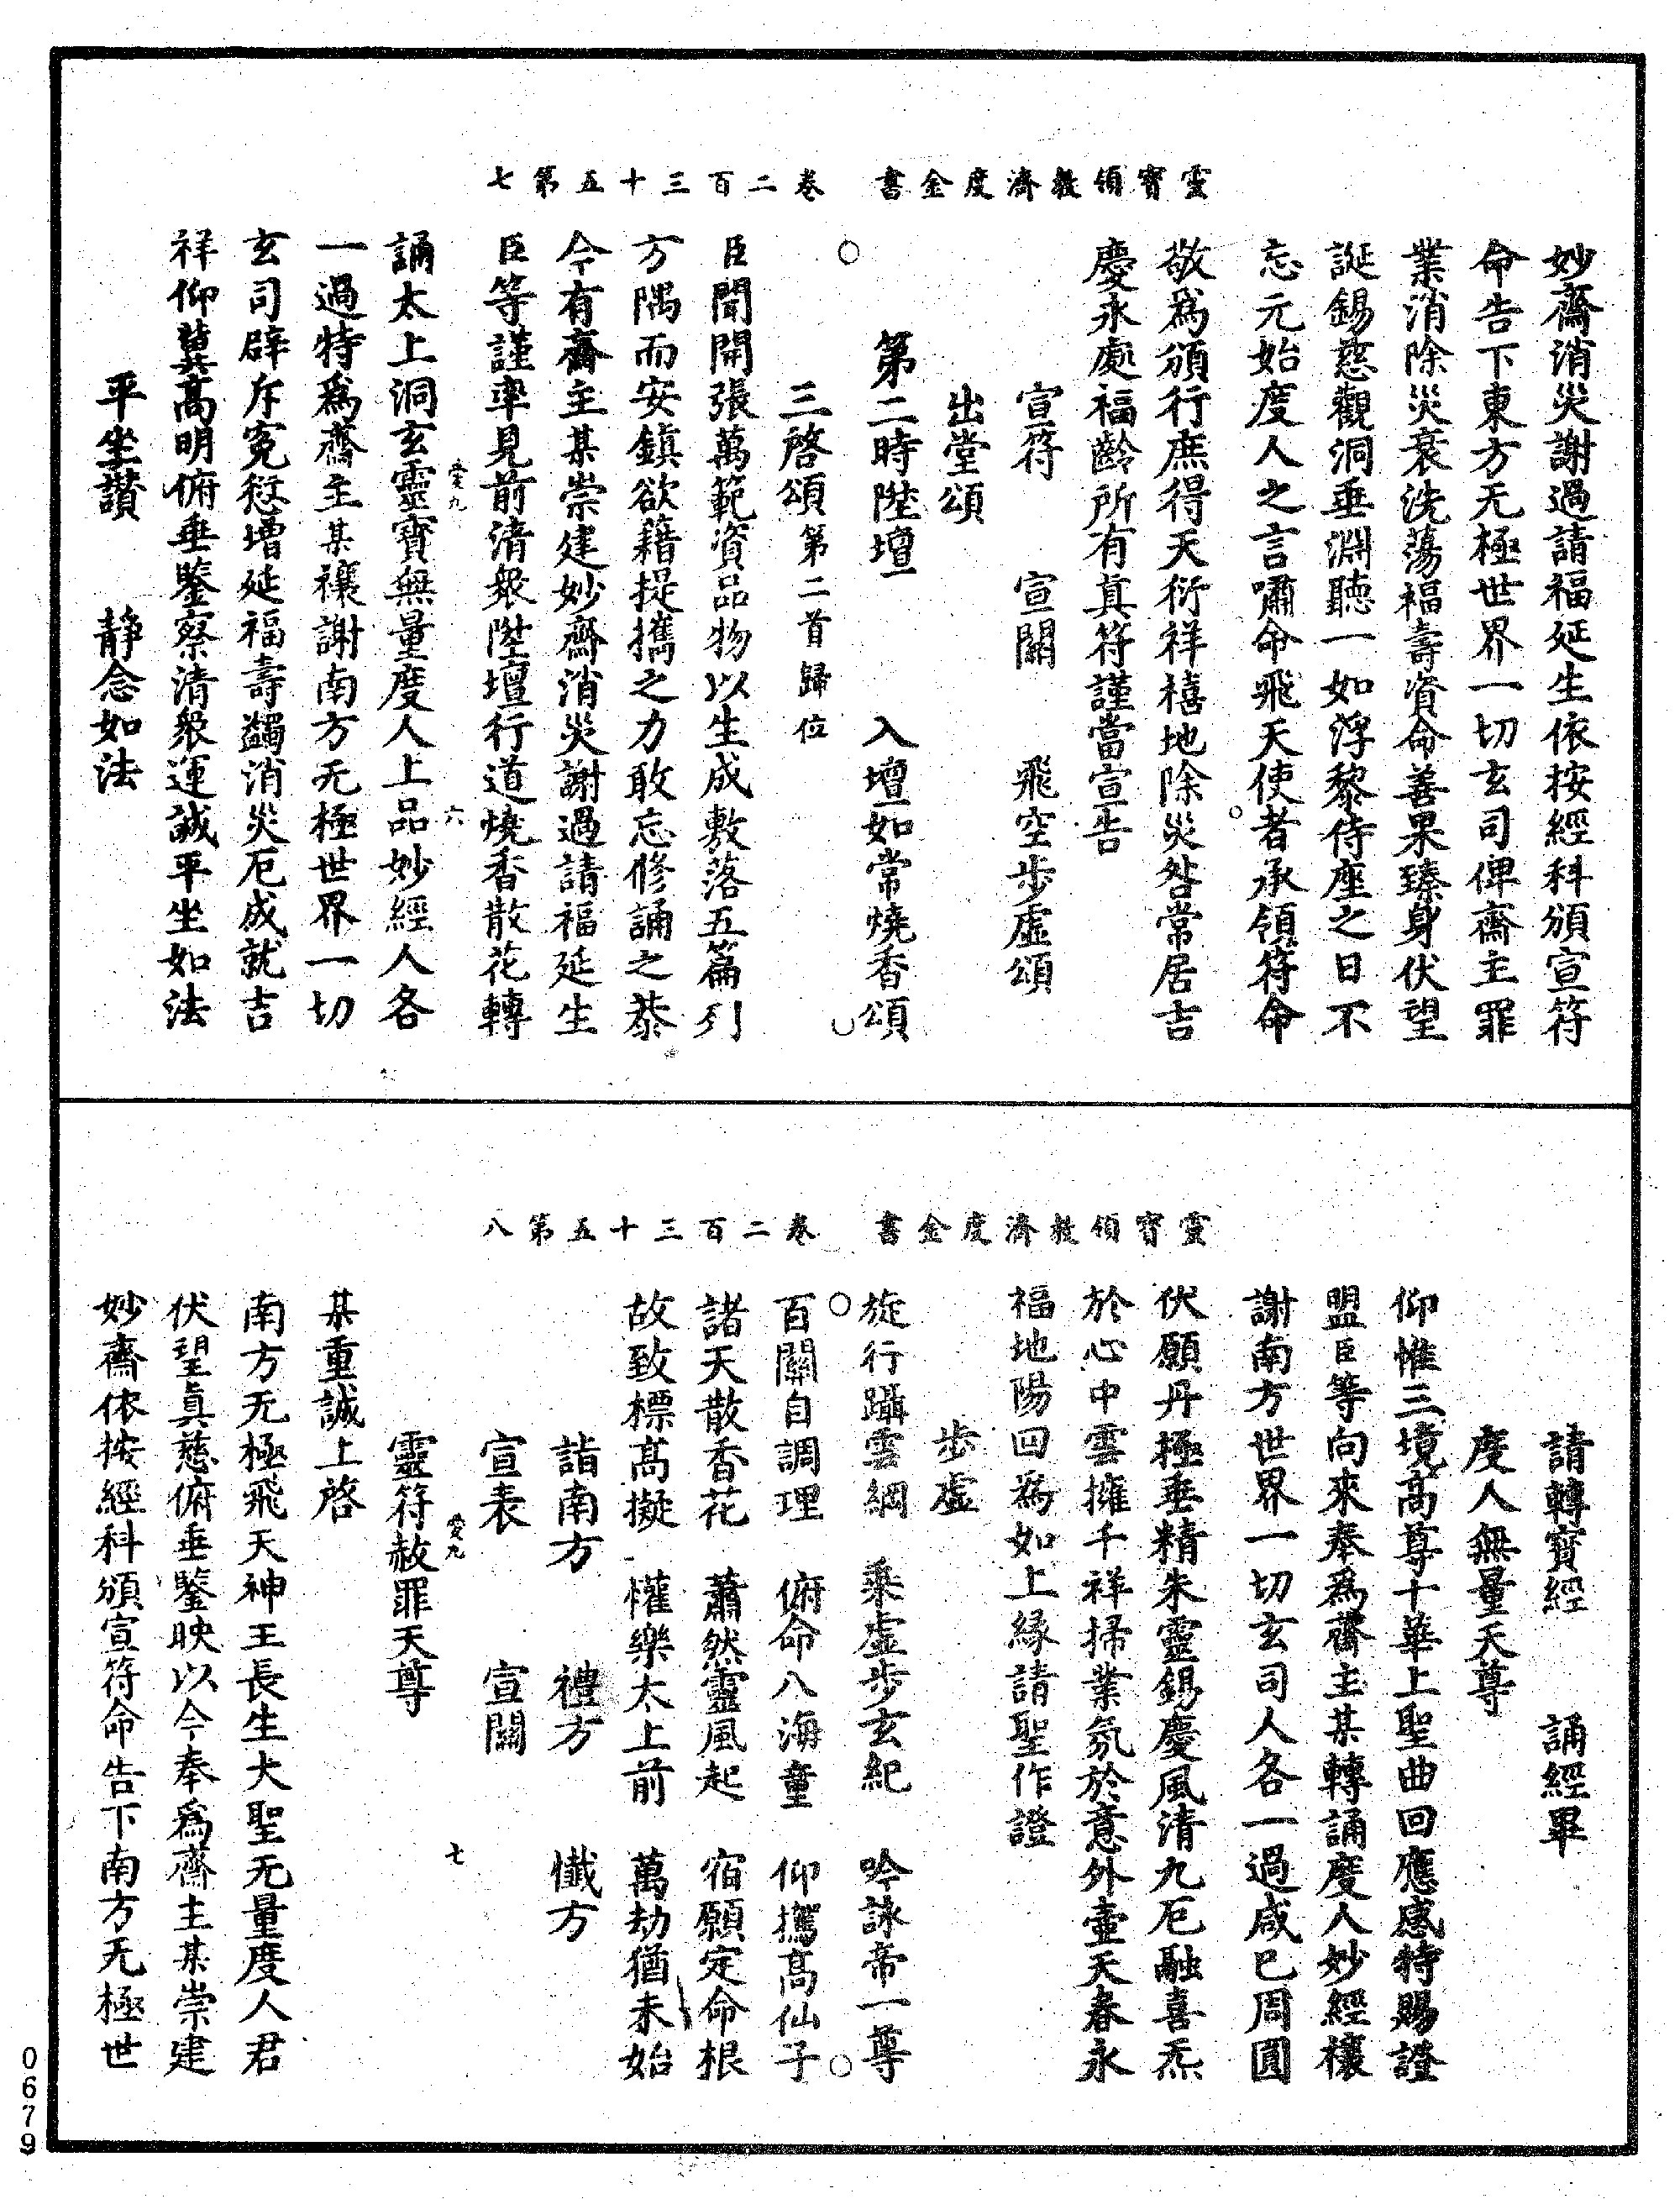 靈寶領教濟度金書　卷二百三十五第七
妙齋消災謝過請福延生依按經科頒宣符
命告下東方无極世界一切玄司俾齋主罪
業消除災衰洗蕩福壽資命善果臻身伏望
誕錫慈觀洞垂淵聽一如浮黎侍座之日不
忘元始度人之言嘯命飛天使者承領符命
敬爲頒行庶得天衍祥禧地除災咎常居吉
慶永處福齡所有真符謹當宣告
宣符　宣關　飛空步虛頌
出堂頌
第二時陞壇　入壇如常燒香頌
三啓頌第二首歸位
臣聞開張萬範資品物以生成敷落五篇列
方隅而安鎮欲藉提攜之力敢忘修誦之恭
今有齋主某崇建妙齋消災謝過請福延生
臣等謹率見前清衆陞壇行道燒香散花轉
愛九　六
誦太上洞玄靈寶無量度人上品妙經人各
一過特爲齋主某禳謝南方无極世界一切
玄司辟斥寃愆增延福壽蠲消災厄成就吉
祥仰冀高明俯垂鑒察清衆運誠平坐如法
平坐讚　靜念如法
靈寶領教濟度金書　卷二百三十五第八
請轉寶經　誦經畢
度人無量天尊
仰惟三境高尊十華上聖曲回應感特賜證
盟臣等向來奉爲齋主某轉誦度人妙經禳
謝南方世界一切玄司人各一過咸已周圓
伏願丹極垂精朱靈錫慶風清九厄融喜炁
於心中雲擁千祥掃業氛於意外壺天春永
福地陽回爲如上緣請聖作證
步虛
旋行躡雲綱　乘虛步玄紀　吟詠帝一尊
百關自調理　俯命八海童　仰攜高仙子
諸天散香花　蕭然靈風起　宿願定命根
故致標高擬　懽樂太上前　萬劫猶未始
詣南方　禮方　懺方
宣表　宣關
愛九　七
靈符赦罪天尊
某重誠上啓
南方无極飛天神王長生大聖无量度人君
伏望真慈俯垂鑒映以今奉爲齋主某崇建
妙齋依按經科頒宣符命告下南方无極世
0679